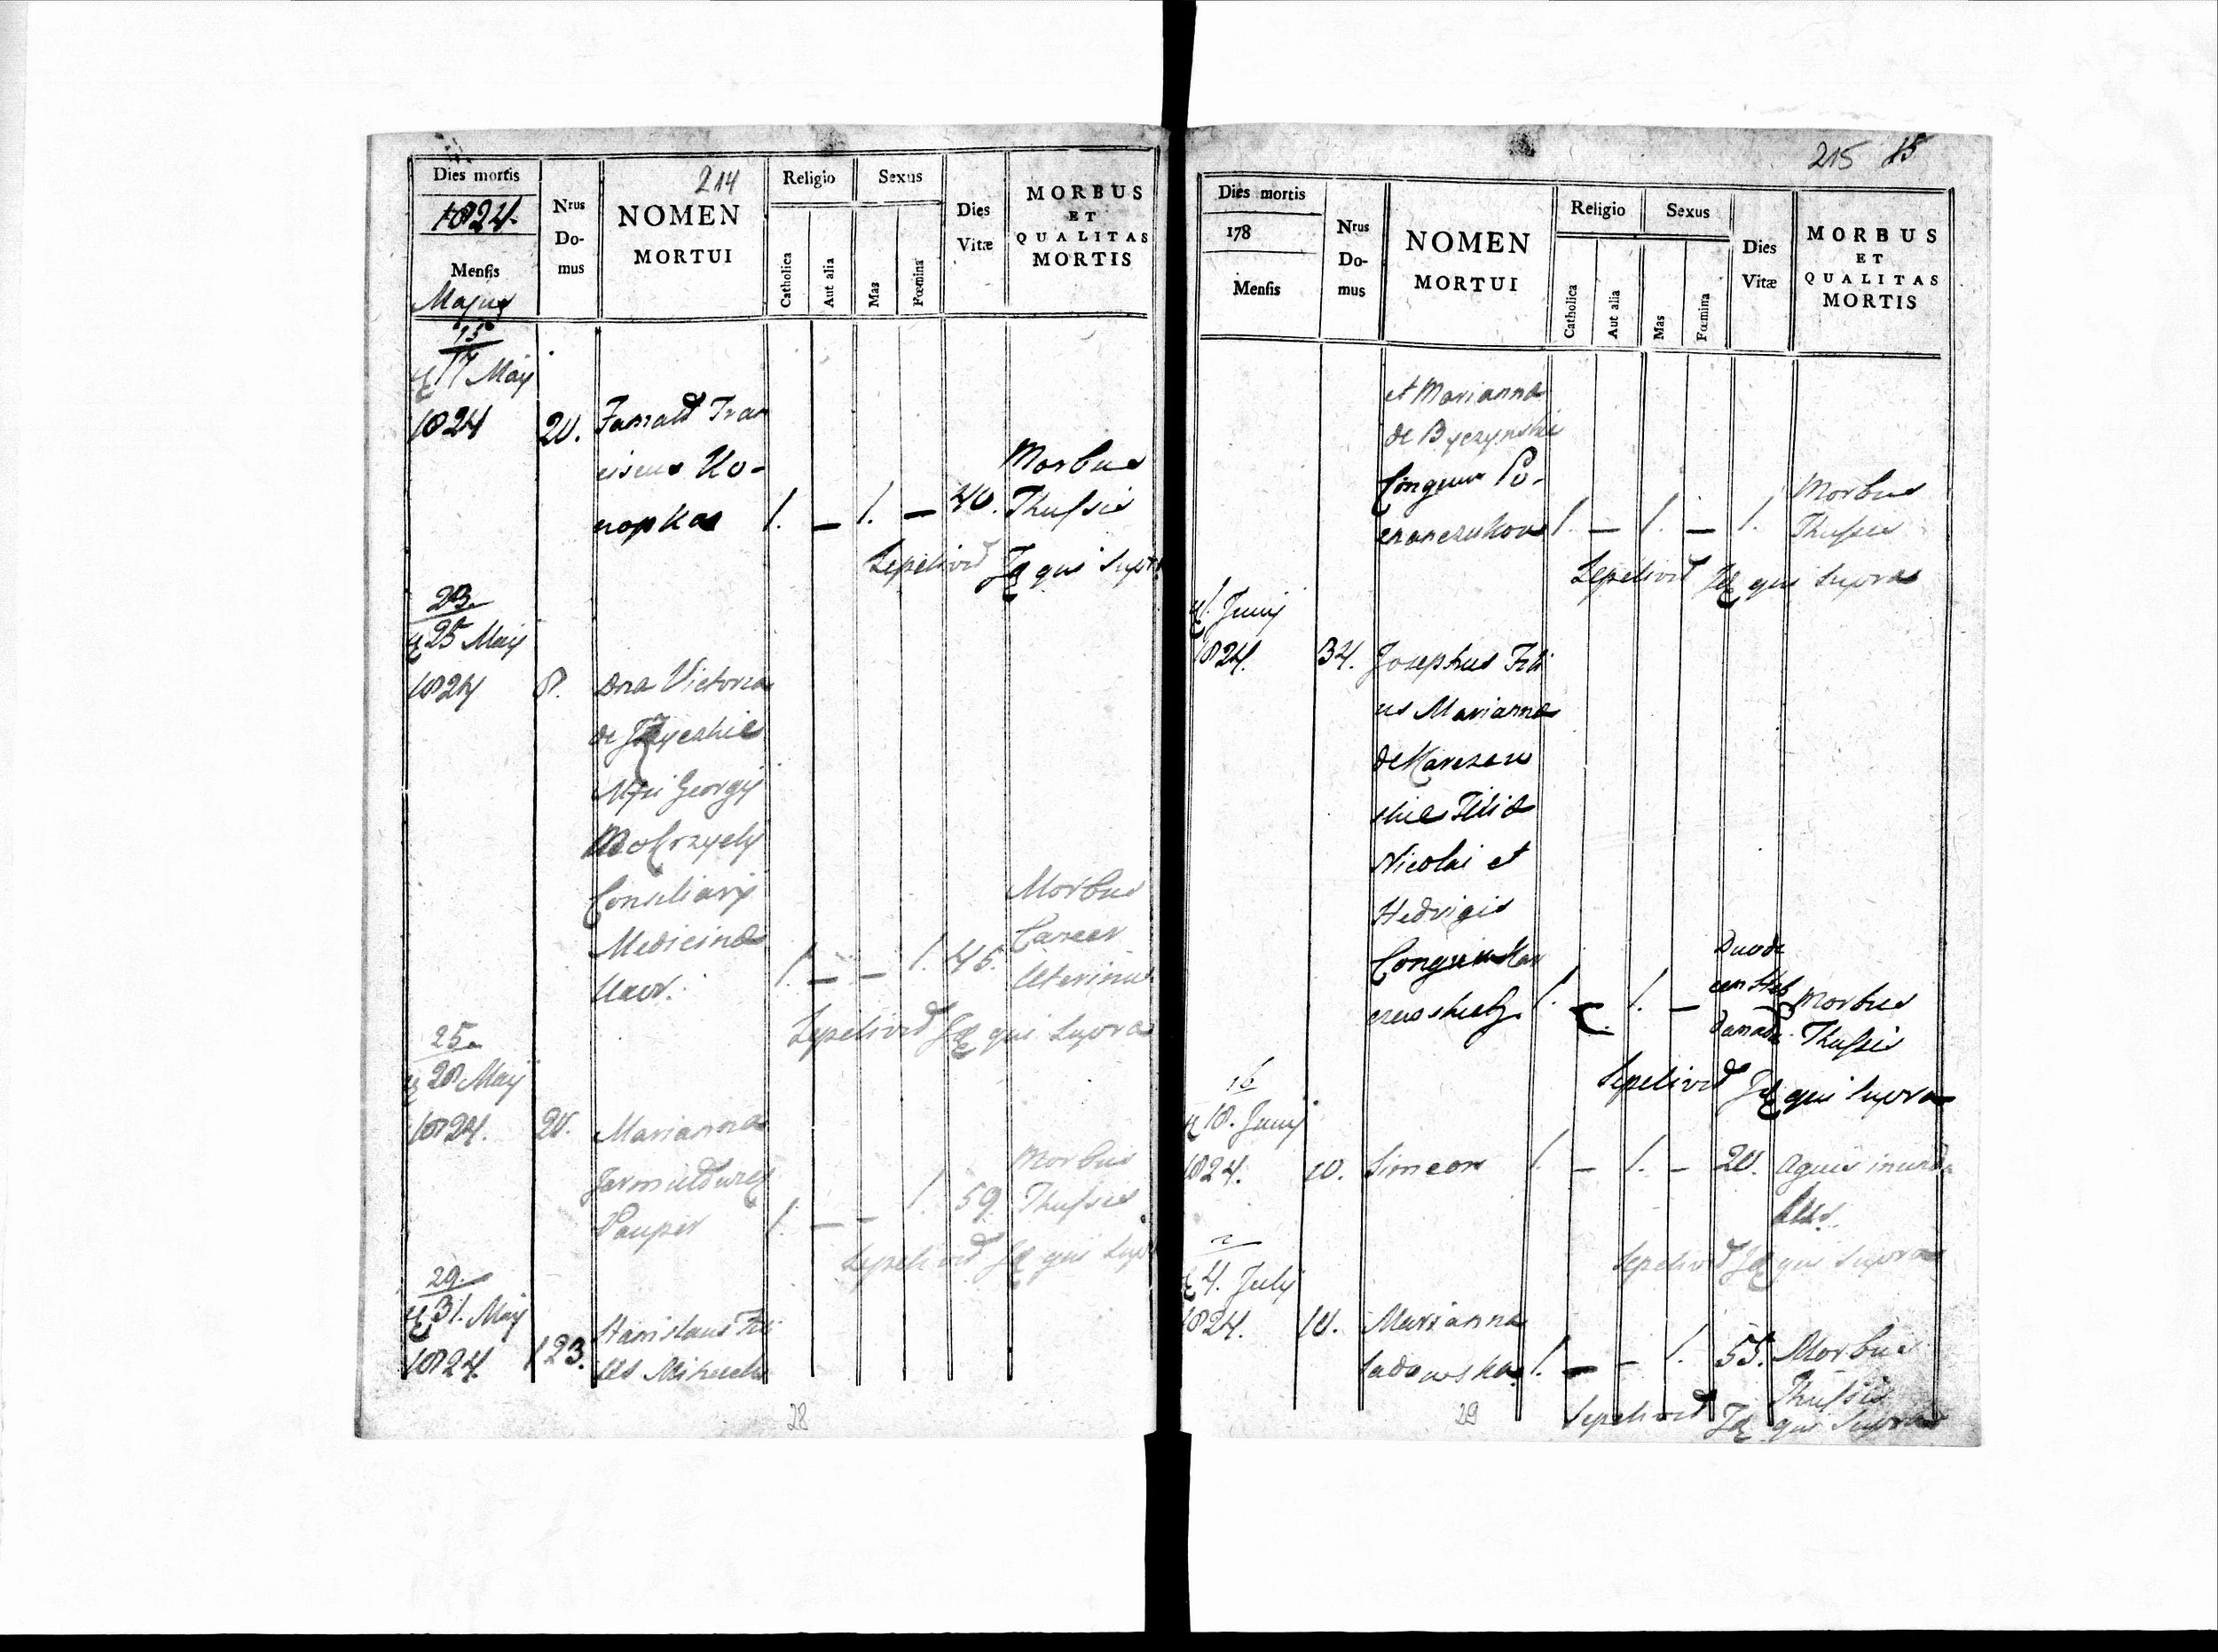 214
Dies mortis
1824.
Mensis
Majus
Nrus
Do-
mus
NOMEN
MORTUI
Religio
Catholica
Aut alia
Sexus
Mas
Fœmina
Dies
Vitæ
MORBUS
ET
QUALITAS
MORTIS
15
17 Maij
1824 20. Famats Fran
ciscus Ko-
nopka 1. — 1. — 40.
Morbus
Thussis
Sepelivit qui Supra
23.
25 Maij
1824 8. Dna Victoria
de
Georgij
Consiliarij
Medicinæ
1. — — 1. 45.
Morbus
Cancer
Uterinus
Sepelivit qui Supra
25.
28 Maij
1824. 20. Marianna
Pauper 1. — — 1. 59
Morbus
Thussis
Sepelivit qui Supra
29.
31. Maij
1824. 123. Stanislaus Fili
us
28
215 15
Dies mortis
178
Mensis
Nrus
Do-
mus
NOMEN
MORTUI
Religio
Catholica
Aut alia
Sexus
Mas
Fœmina
Dies
Vitæ
MORBUS
ET
QUALITAS
MORTIS
et Marianna
de Byczynskie
Conjgum Po-
1. — 1. — 1.
Morbus
Thussis
Sepelivit qui Supra
Junij
1824. 34. Josephus Fili
us Marianna
de
Filia
Nicolai et
Hedvigis
1. 1. —
Duode
cem Heb
damada
Morbus
Thussis
Sepelivit qui Supra
16
18. Junij
1824. 10. Simeon 1. — 1. — 20. aquis inunda
Sepelivit qui Supra
2
4. Julij
1824. 10. Marianna
Sadowska 1. — — 1. 55. Morbus
Thussis
Sepelivit qui Supra
29